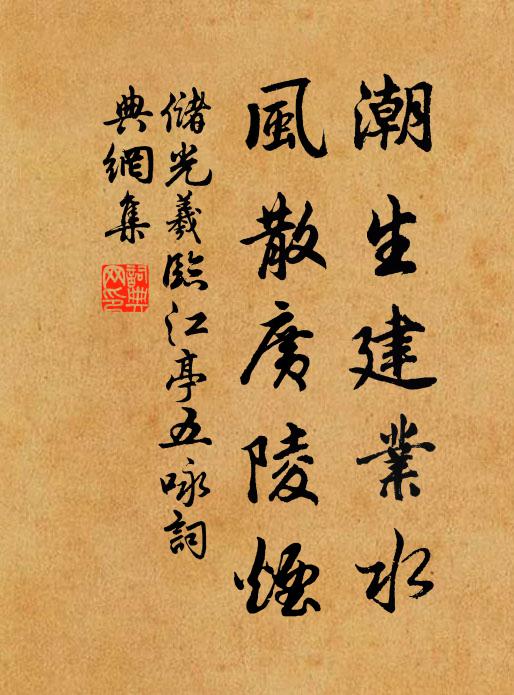 潮生建業水
風散廣陵煙
儲光羲臨江亭五咏詞
典網集
詞典
网印